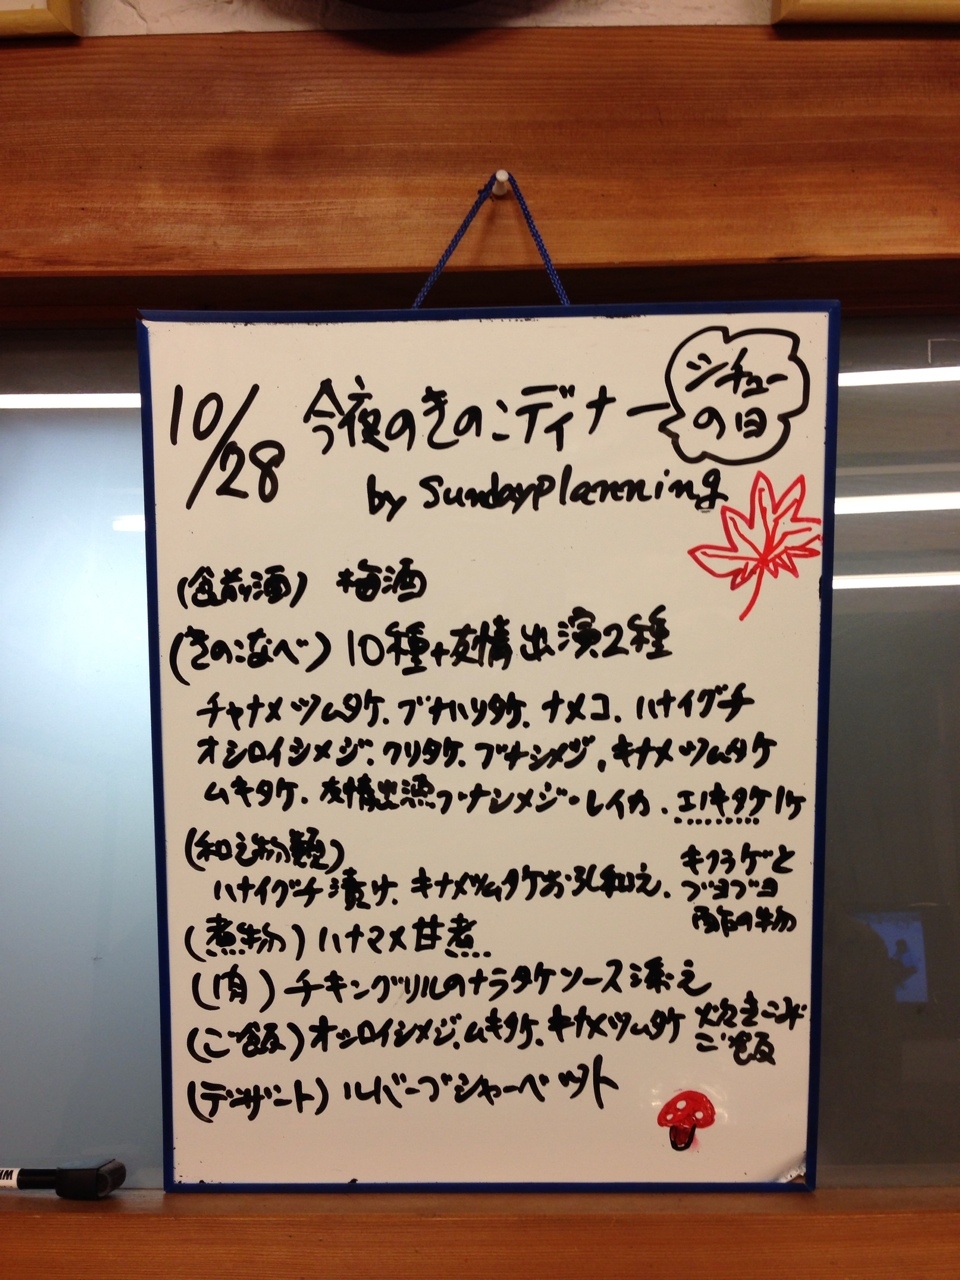 10/28
今夜のきのこディナー
シチューの日
by Sundayplanning
(食前酒) 梅酒
(きのこなべ) 10種+友情出演2種
チャナメツムタケ、ブナハリタケ、ナメコ、ハナイグチ
オシロイシメジ、クリタケ、ブナシメジ、キナメツムタケ
ムキタケ、友情出演ブナシメジ・レイカ、エノキタケ
(和え物類)
ハナイグチ漬け、キナメツムタケおろし和え、
キクラゲと
ブヨブヨ
酢の物
(煮物) ハナマメ甘煮
(肉) チキングリルのナラタケソース添え
(ご飯) オシロイシメジ、ムキタケ、キナメツムタケ 炊きこみ
ご飯
(デザート) ルバーブシャーベット